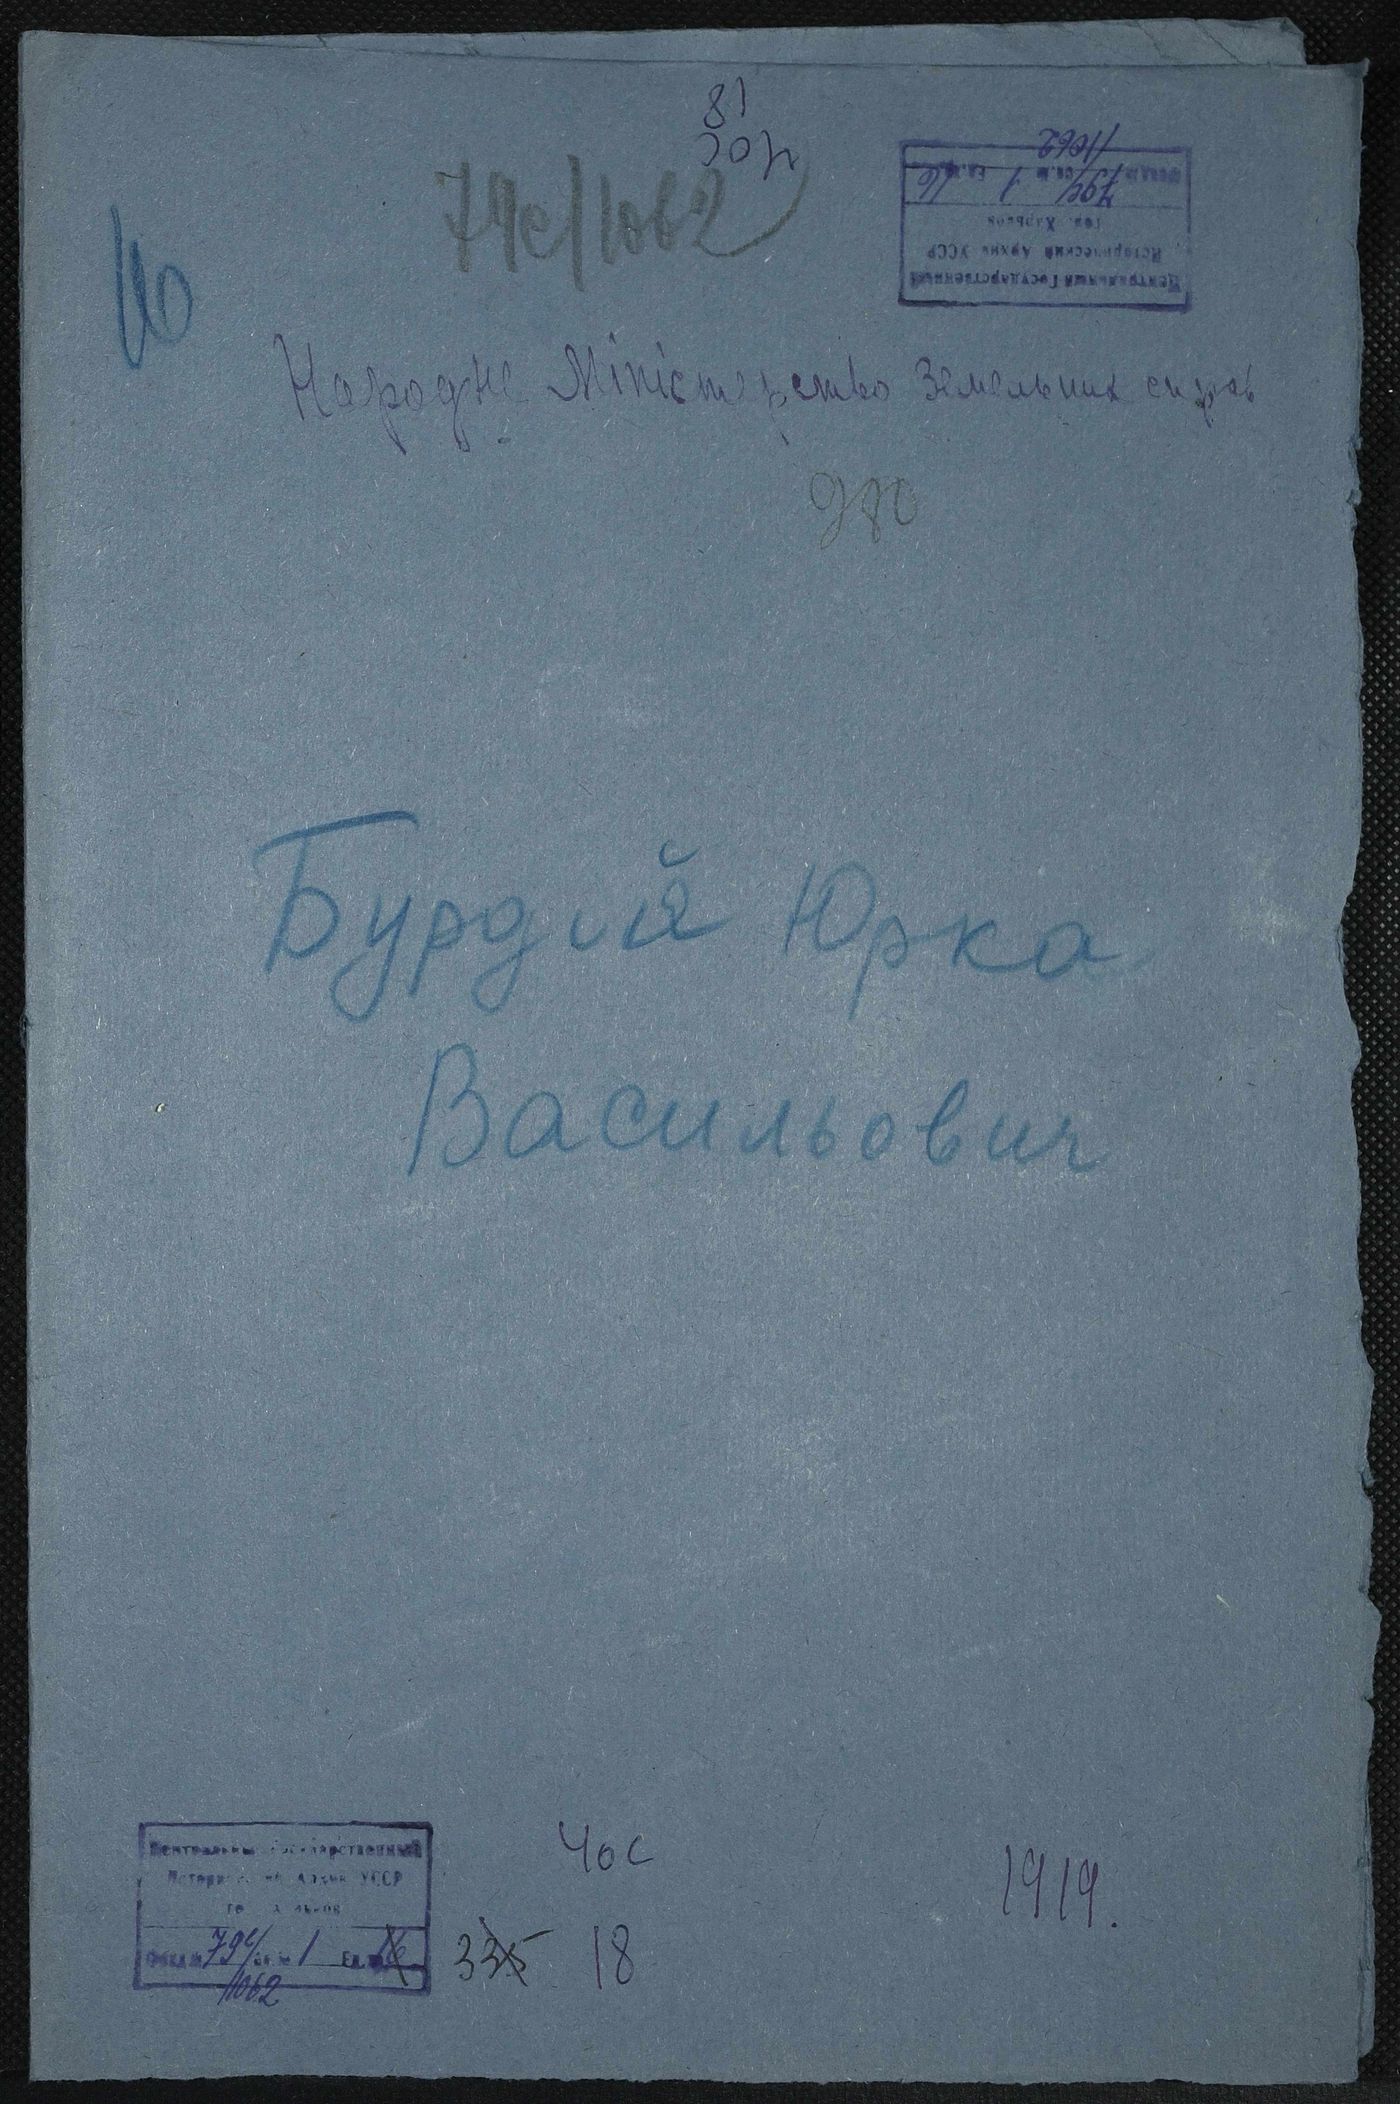 79с/1062
16
Центральный Государственный
Исторический Архив УССР
гор. Харьков
Фонд № 79с/1062 св. № 1 Ед. 16
Народне Міністерство Земельних справ
980
Бурдій Юрка
Васильович
Центральный Государственный
Исторический Архив УССР
Фонд № 79с/1062 св. № 1 Ед.
40с
1919.
335 18